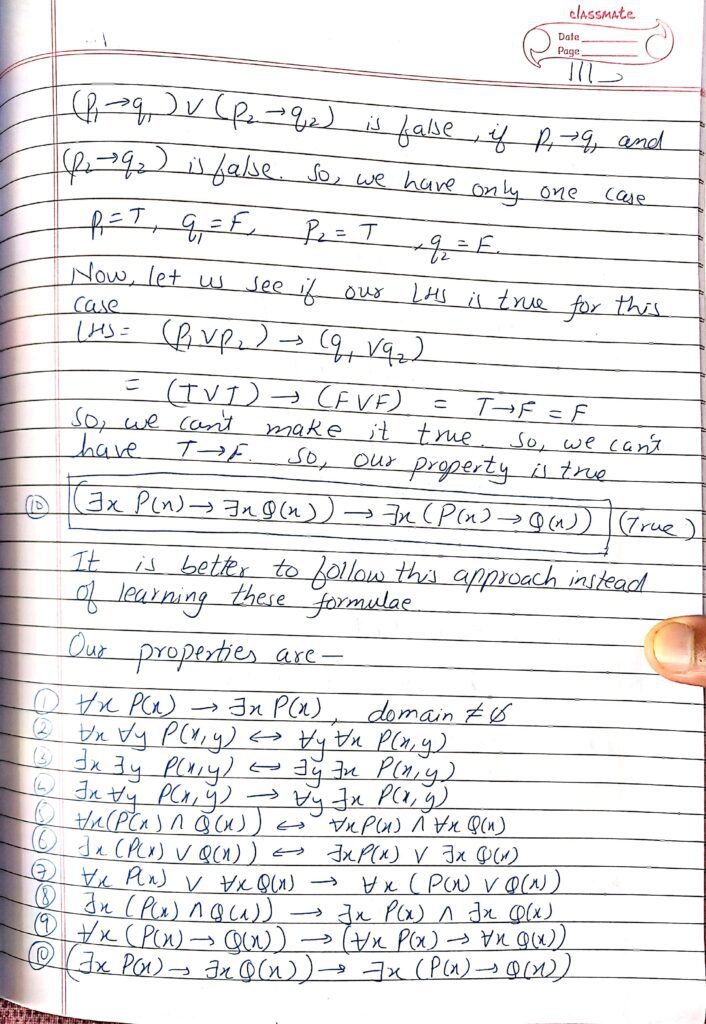 classmate
Date
Page
111
(P₁→q₁) ∨ (P₂→q₂) is false, if P₁→q₁ and
(P₂→q₂) is false. So, we have only one case
P₁=T, q₁=F, P₂=T, q₂=F.
Now, let us see if our LHS is true for this
case
LHS = (P₁∨P₂) → (q₁∨q₂)
= (T∨T) → (F∨F) = T→F = F
So, we can't make it true. So, we can't
have T→F. So, our property is true
⑩ (∃x P(x) → ∃x Q(x)) → ∃x (P(x) → Q(x)) (True)
It is better to follow this approach instead
of learning these formulae
Our properties are—
① ∀x P(x) → ∃x P(x), domain ≠ ∅
② ∀x ∀y P(x,y) ↔ ∀y ∀x P(x,y)
③ ∃x ∃y P(x,y) ↔ ∃y ∃x P(x,y)
④ ∃x ∀y P(x,y) → ∀y ∃x P(x,y)
⑤ ∀x (P(x) ∧ Q(x)) ↔ ∀x P(x) ∧ ∀x Q(x)
⑥ ∃x (P(x) ∨ Q(x)) ↔ ∃x P(x) ∨ ∃x Q(x)
⑦ ∀x P(x) ∨ ∀x Q(x) → ∀x (P(x) ∨ Q(x))
⑧ ∃x (P(x) ∧ Q(x)) → ∃x P(x) ∧ ∃x Q(x)
⑨ ∀x (P(x) → Q(x)) → (∀x P(x) → ∀x Q(x))
⑩ (∃x P(x) → ∃x Q(x)) → ∃x (P(x) → Q(x))